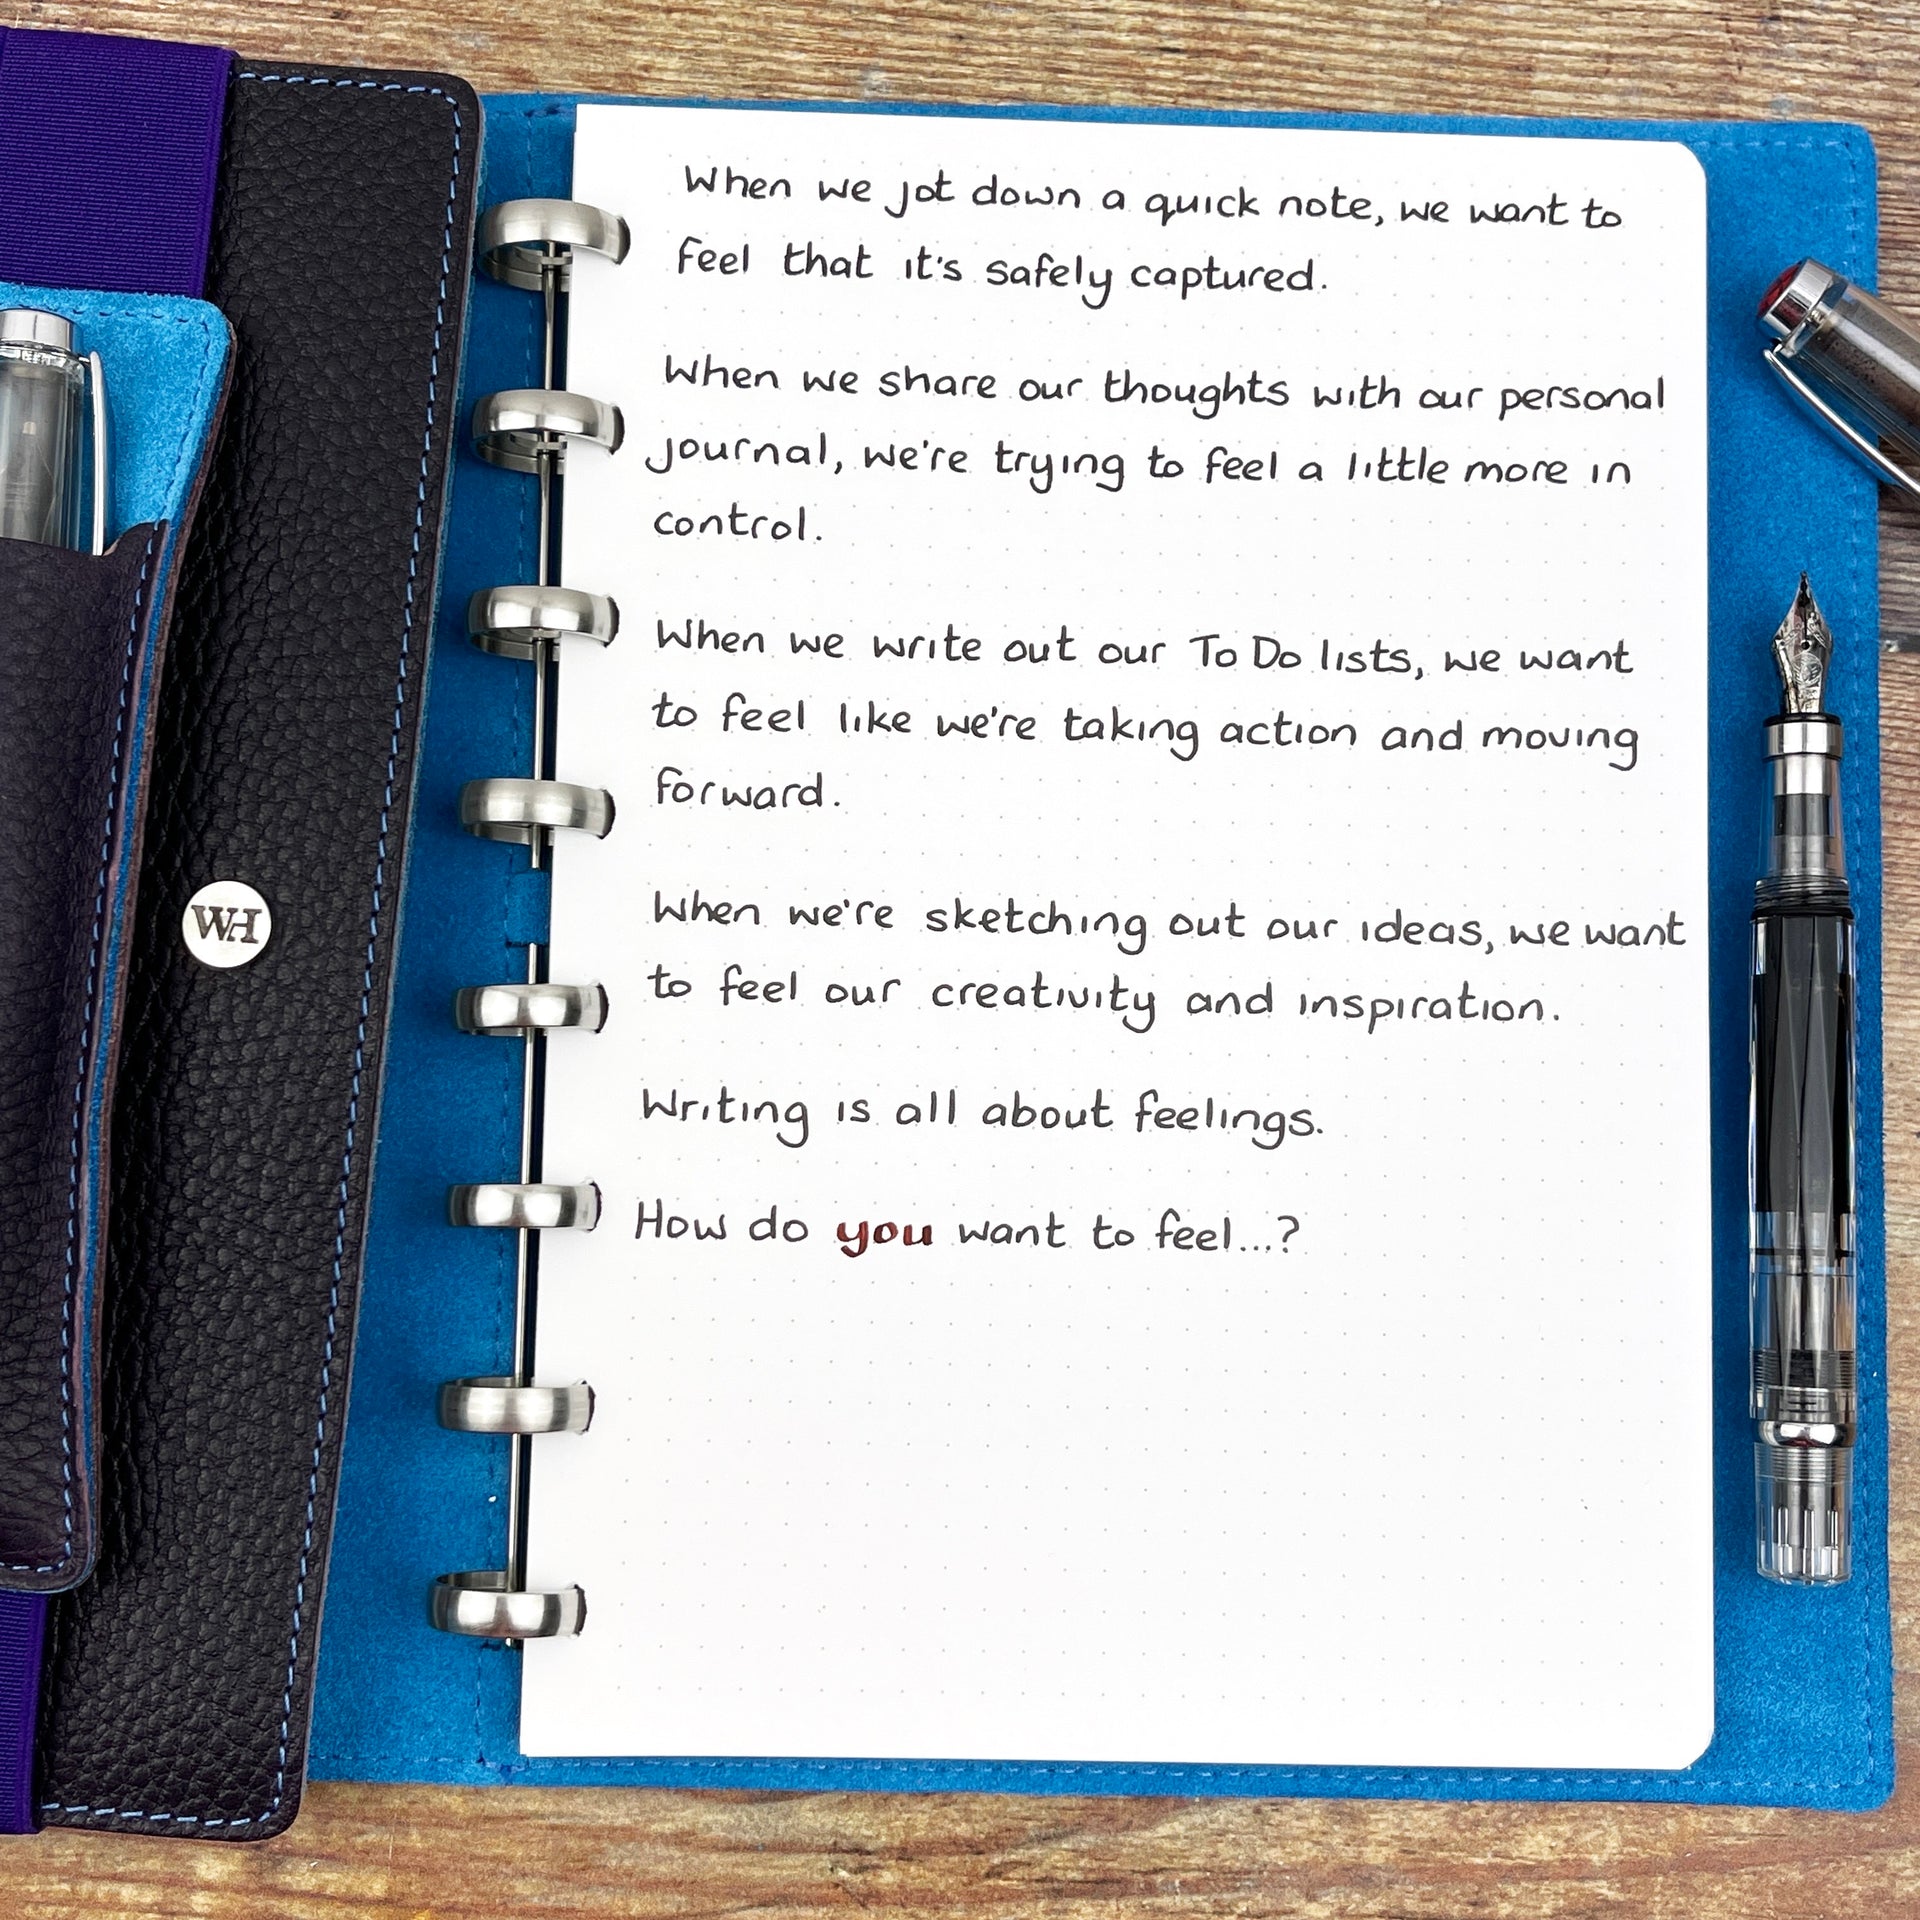 When we jot down a quick note, we want to
feel that it's safely captured.
When we share our thoughts with our personal
journal, we're trying to feel a little more in
control.
When we write out our To Do lists, we want
to feel like we're taking action and moving
forward.
When we're sketching out our ideas, we want
to feel our creativity and inspiration.
Writing is all about feelings.
How do you want to feel...?
WH